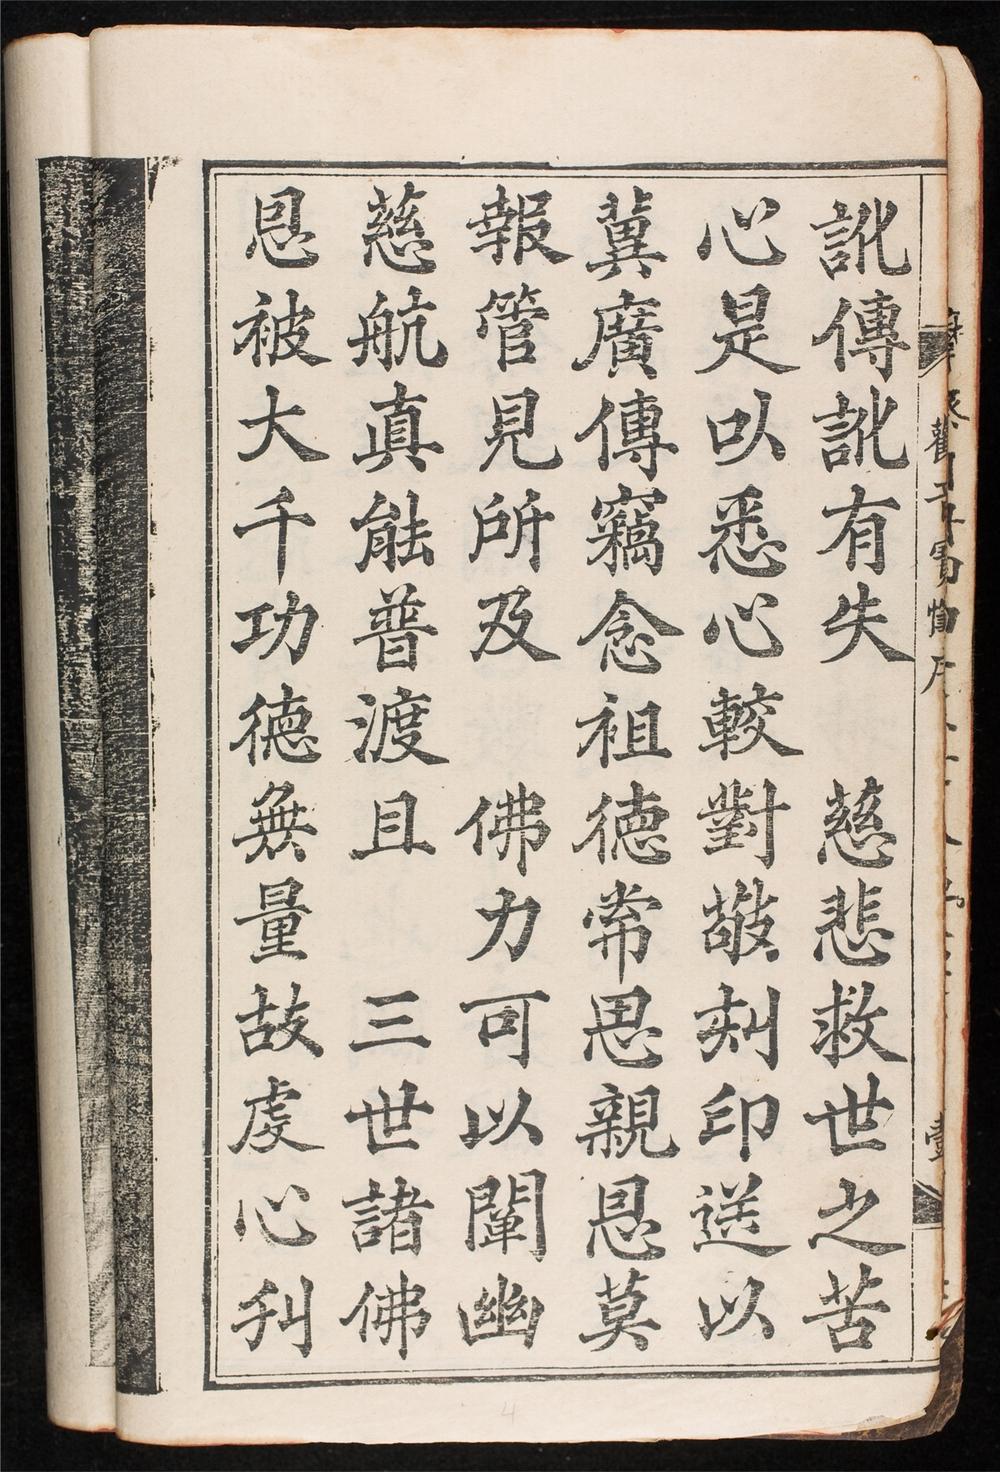 訛傳訛有失　慈悲救世之苦
心是以悉心較對敬刻印送以
冀廣傳竊念祖德常思親恩莫
報管見所及　佛力可以闡幽
慈航真能普渡且　三世諸佛
恩被大千功德無量故虔心刋
壹
4